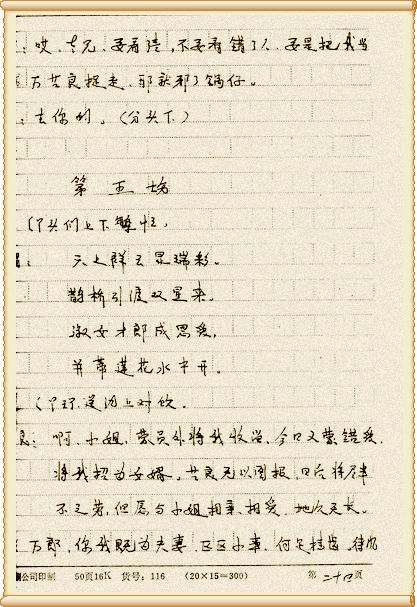 ：哎、老兄，要看清，不要看错了人，要是把我当
万共良捉走，那就邪了锅仔。
：去你的。（分头下）
第五场
（丫头们上下繁忙。
：天上群云显瑞彩。
鹊桥引渡双星来。
淑女才郎成恩爱，
并蒂莲花水中开。
（丫环送酒上对饮。
良：啊，小姐，蒙员外将我收留，今日又蒙错爱，
将我招为女婿。共良无以图报，日后将
不之劳，但愿与小姐相亲相爱，地久天长。
万郎，你我既为夫妻，区区小事，何足挂齿。待
公司印制 50页16K 货号：116 （20×15=300） 第二十四页